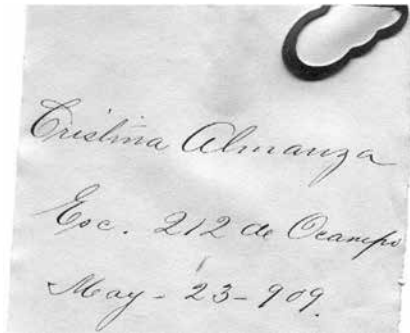 Cristina Almanza
Esc. 212 de Ocampo
May - 23 - 909.